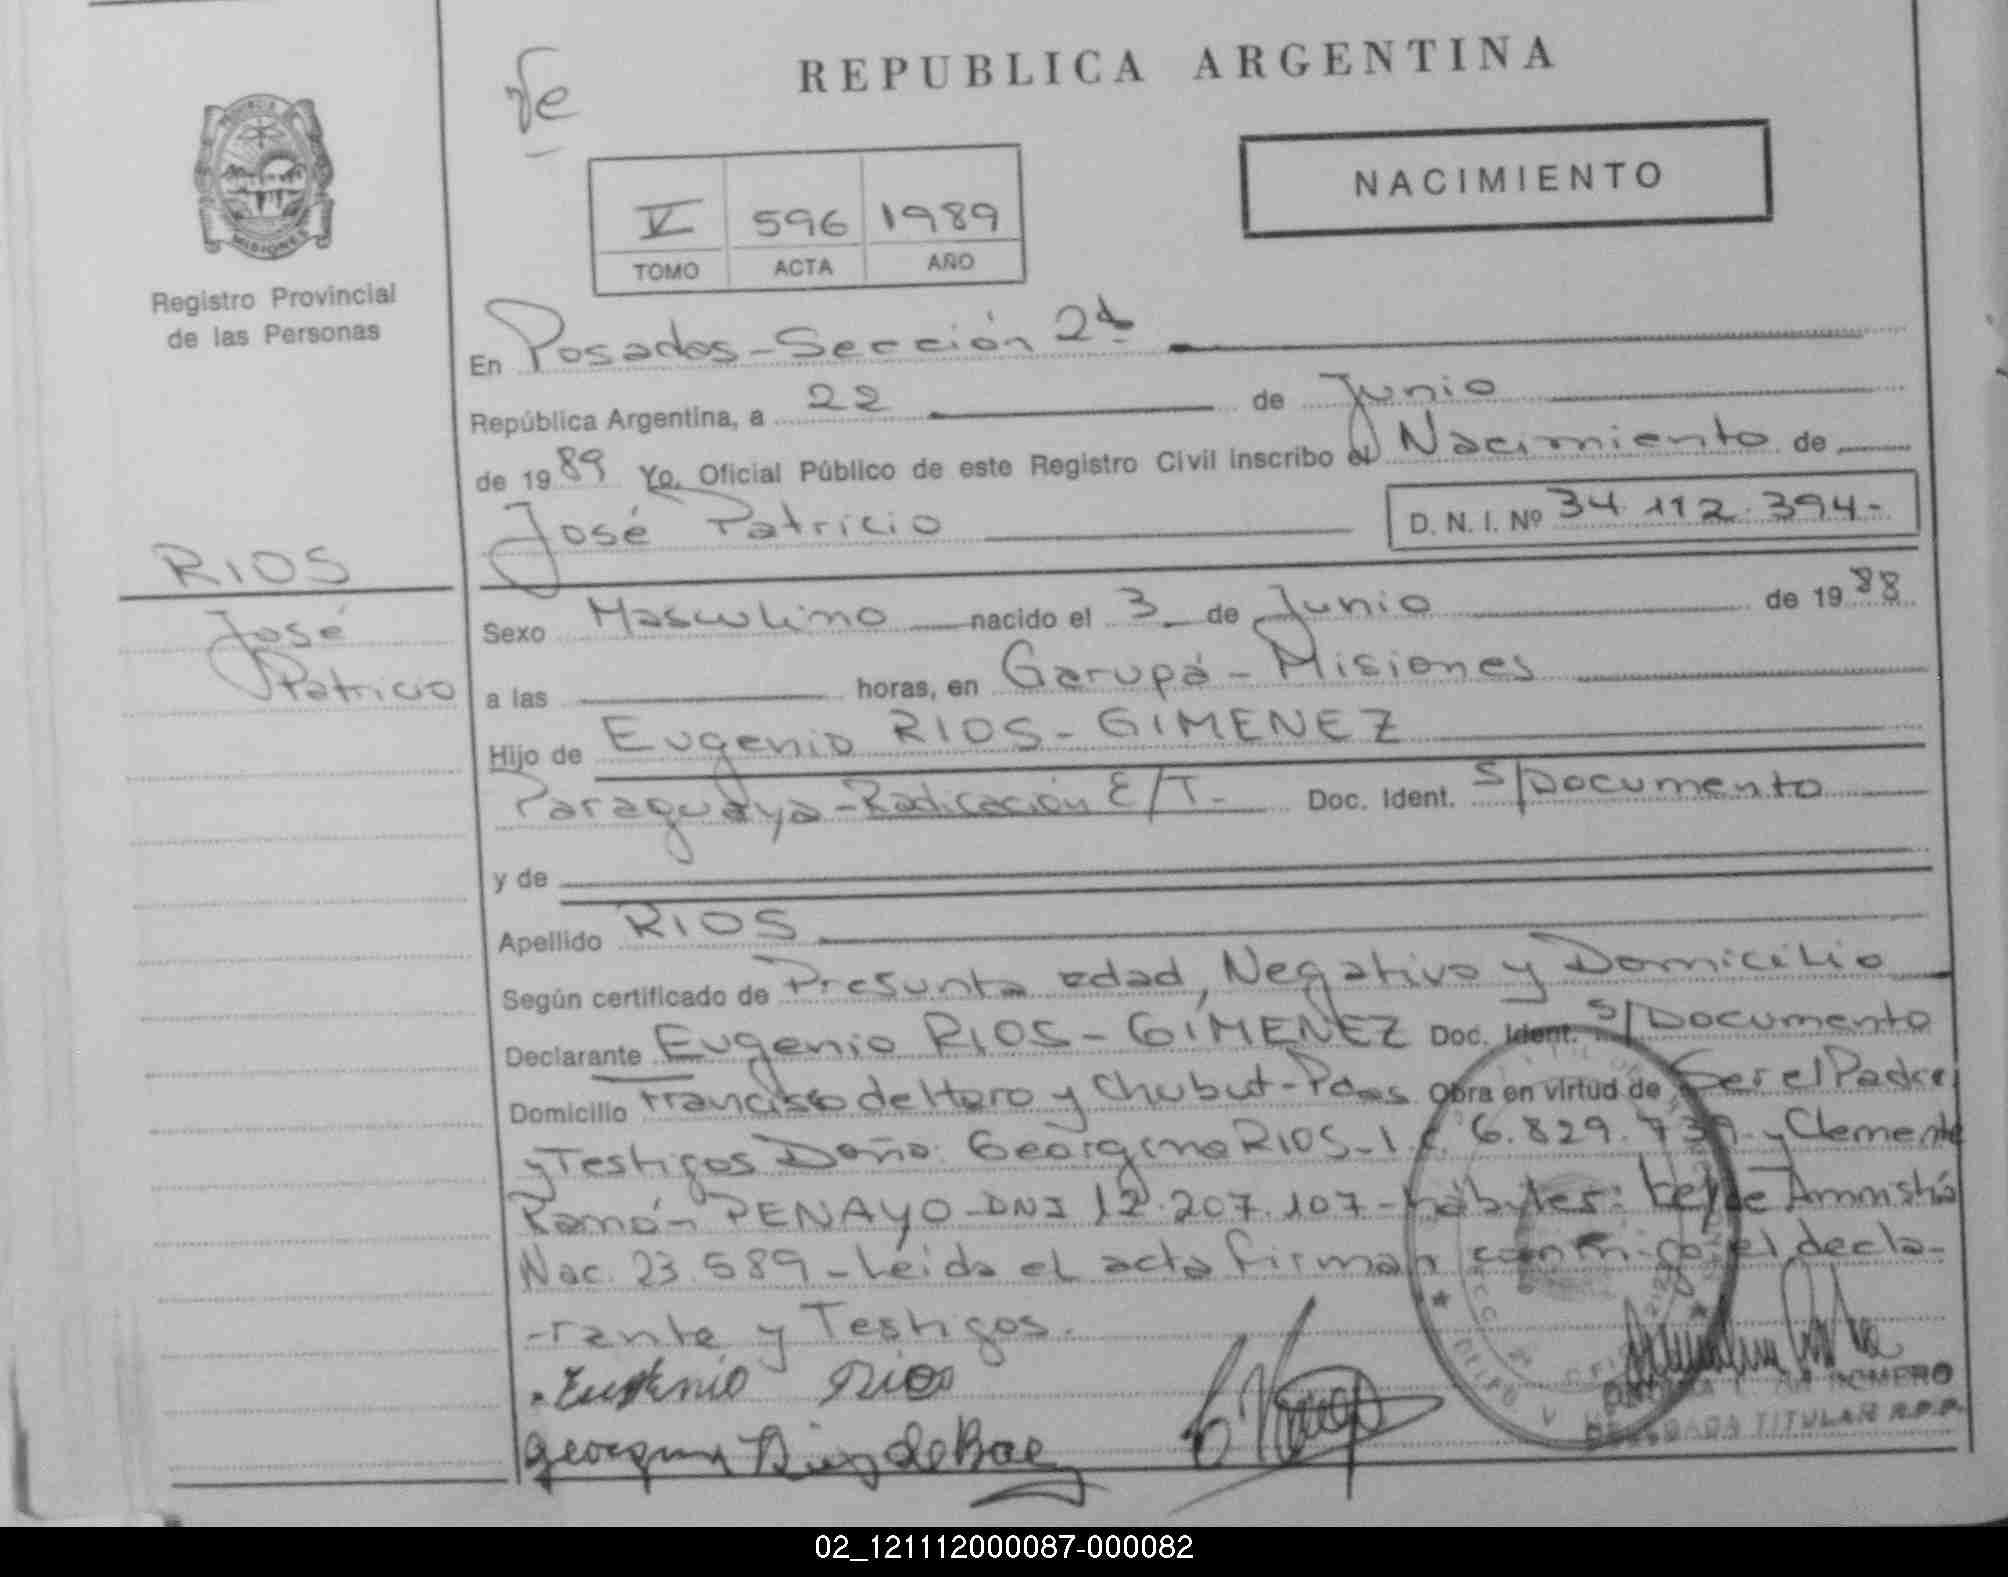 REPUBLICA ARGENTINA
NACIMIENTO
V 596 1989
TOMO ACTA AÑO
PROVINCIA
MISIONES
Registro Provincial
de las Personas
RIOS
José
Patricio
En Posadas - Sección 2ª
República Argentina, a 22 de Junio
de 1989 Yo, Oficial Público de este Registro Civil inscribo el Nacimiento de
José Patricio D. N. I. Nº 34.112.394-
Sexo Masculino nacido el 3 de Junio de 1988
a las horas, en Garupá - Misiones
Hijo de Eugenio RIOS - GIMENEZ
Paraguaya - Radicación E/T - Doc. Ident. S/Documento
y de
Apellido RIOS
Según certificado de Presunta edad, Negativo y Domicilio
Declarante Eugenio RIOS - GIMENEZ Doc. Ident. S/Documento
Domicilio Francisco de Haro y Chubut - Pdas Obra en virtud de Ser el Padre
y Testigos Doña: Georgina RIOS - 6.829.739 - y Clemente
Ramón PENAYO - DNI 12.207.107 - hábyles: Ley de Amnistía
Nac. 23.589 - Leida el acta firman conmigo el decla-
-rante y Testigos.
Eugenio Rios
ROMERO
DELEGADA TITULAR R.P.P.
02_121112000087-000082